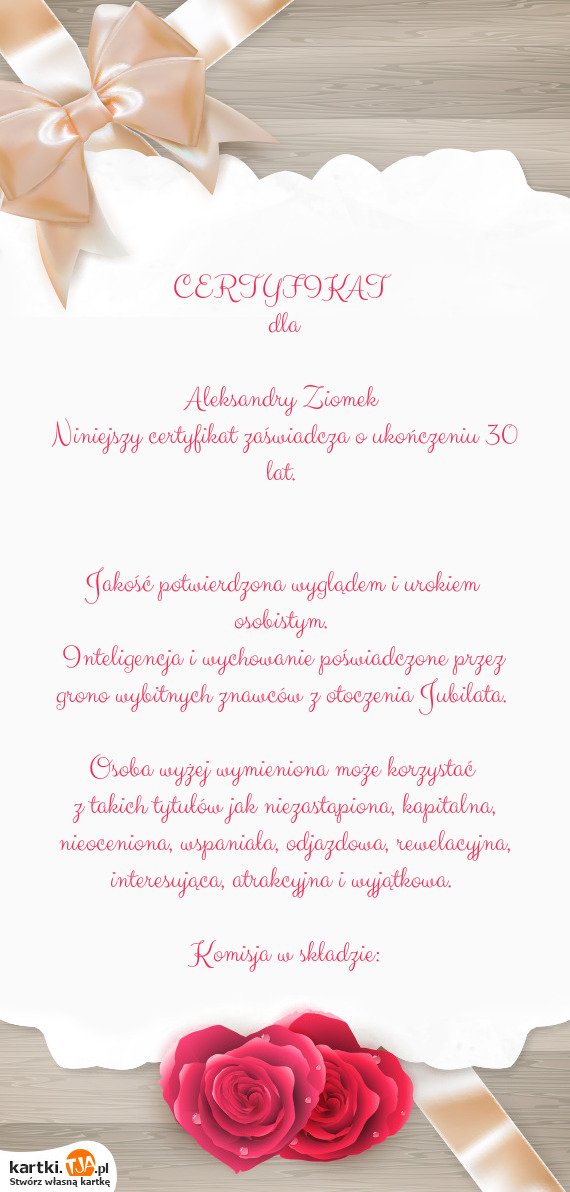 CERTYFIKAT
dla
Aleksandry Ziomek
Niniejszy certyfikat zaświadcza o ukończeniu 30
lat.
Jakość potwierdzona wyglądem i urokiem
osobistym.
Inteligencja i wychowanie poświadczone przez
grono wybitnych znawców z otoczenia Jubilata.
Osoba wyżej wymieniona może korzystać
z takich tytułów jak niezastąpiona, kapitalna,
nieoceniona, wspaniała, odjazdowa, rewelacyjna,
interesująca, atrakcyjna i wyjątkowa.
Komisja w składzie:
kartki.TJA.pl
Stwórz własną kartkę